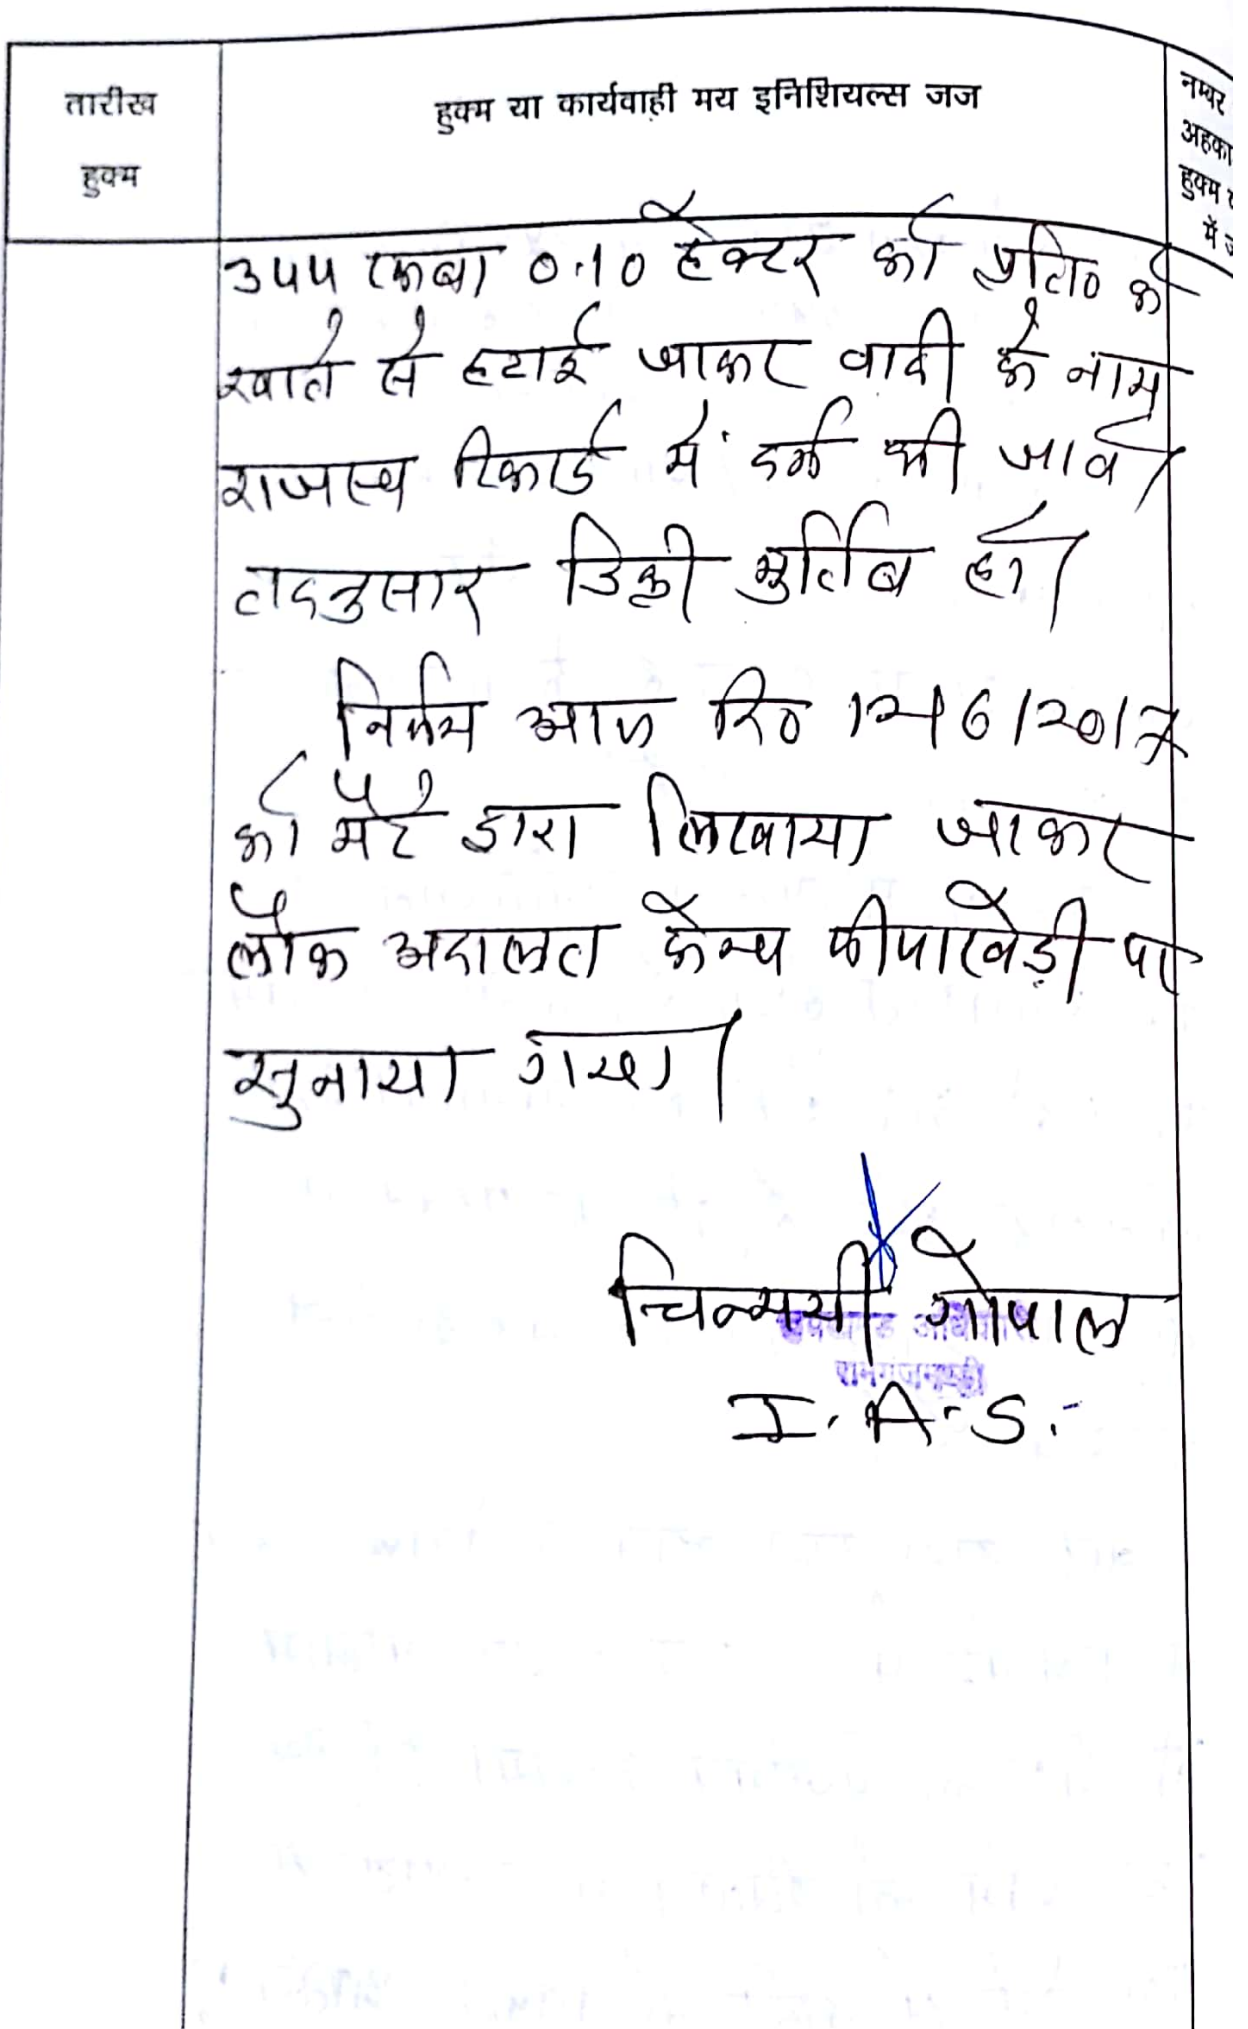 तारीख
हुक्म
हुक्म या कार्यवाही मय इनिशियल्स जज
नम्बर
अहका
हुक्म
में ज
344 रकबा 0.10 हैक्टर को प्रति० के
खाते से हटाई जाकर वादी के नाम
राजस्व रिकार्ड में दर्ज की जावे।
तदनुसार डिक्री मुर्तिब हो।
निर्णय आज दि० 12/6/2017
को मेरे द्वारा लिखवाया जाकर
लोक अदालत कैम्प पीपाखेड़ी पर
सुनाया गया।
चिन्मयी गोपाल
उपखण्ड अधिकारी
रामगंजमण्डी
I.A.S.